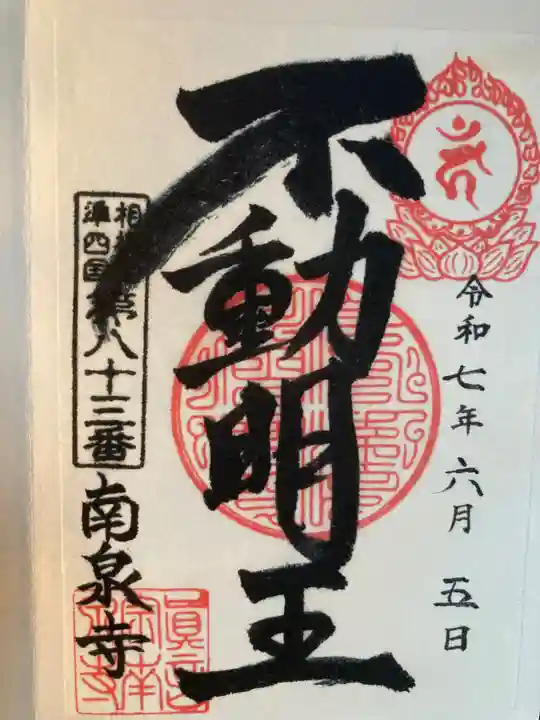 令和七年六月五日
不動明王
相模
準四国
第八十三番
南泉寺